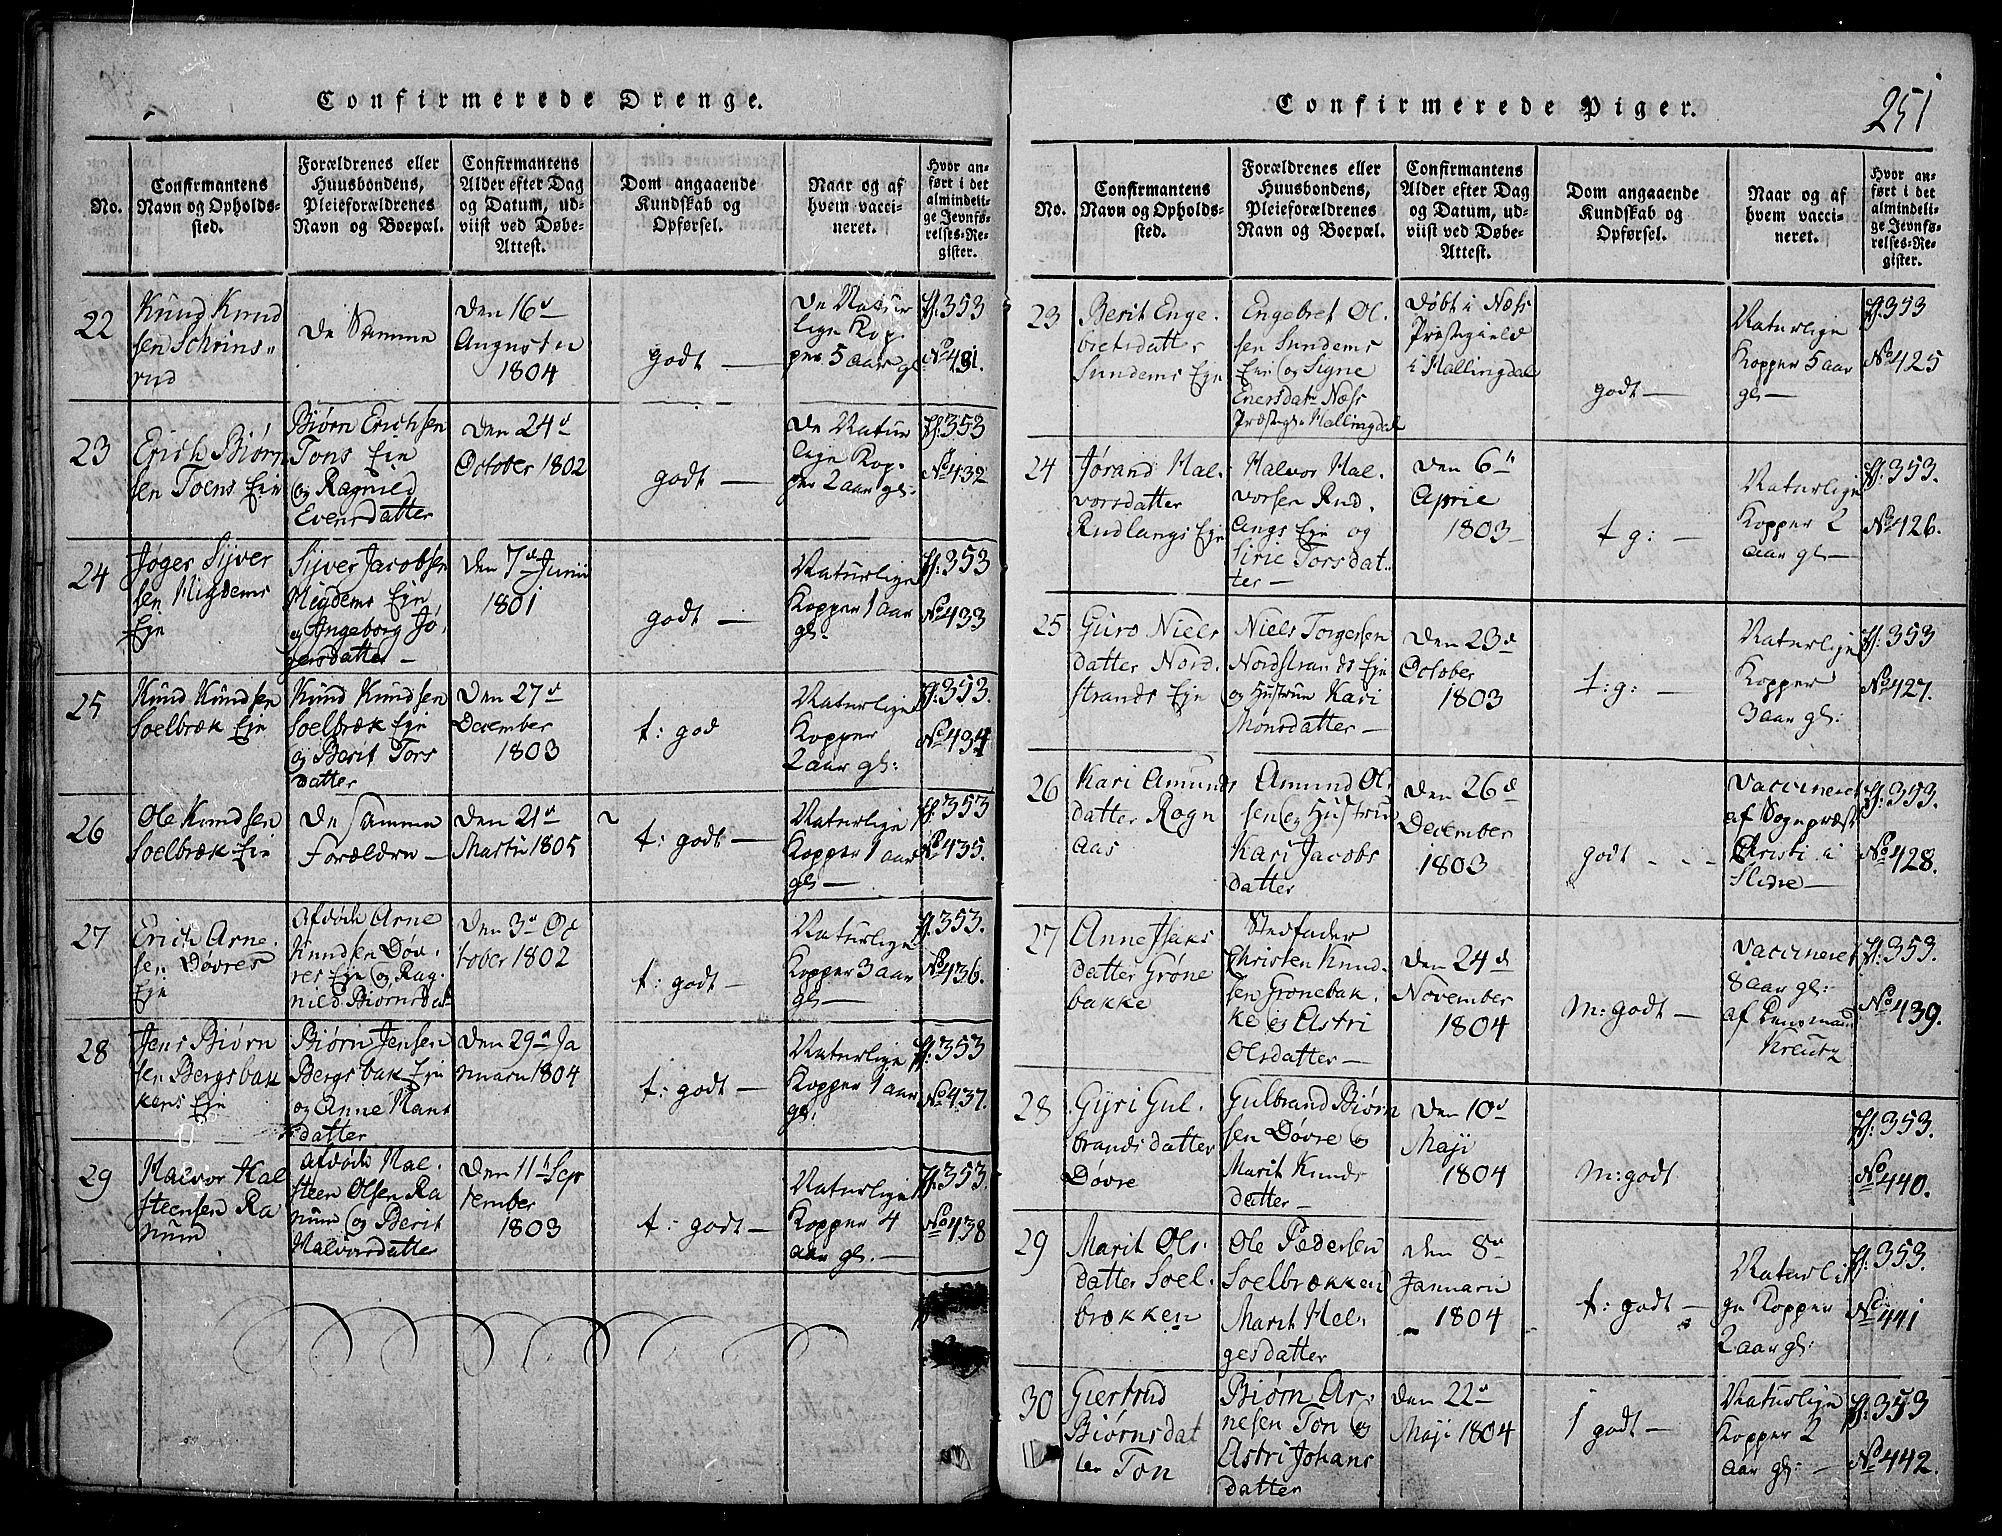 Confirmerede Drenge.
No.
Confirmantens
Navn og Opholds-
sted.
Forældrenes eller
Huusbondens,
Pleieforældrenes
Navn og Boepæl.
Confirmantens
Alder efter Dag
og Datum, ud-
viist ved Døbe-
Attest.
Dom angaaende
Kundskab og
Opførsel.
Naar og af
hvem vacci-
neret.
Hvor an-
ført i det
almindeli-
ge Jevnfø-
relses-Re-
gister.
22
Knud Knud
sen Schrins-
rud
De Samme
Den 16d
Augusti
1804
godt —
De Natur
lige Kop-
per 5 aar gl
f: 353
No 431.
23
Erich Biørn
sen Toens Eie
Biørn Erichsen
Tons Eie
og Ragnild
Evensdatter
Den 24d
October 1802
godt —
De Natur
lige Kop-
per 2 aar gl:
f: 353
No 432
24
Jøger Sijver
sen Migdems
Eje
Sijver Jacobsen
Migdems Eje
og Angeborg Jø-
gersdatter —
Den 7d Junii
1801
godt —
Naturlige
Kopper 1 aar
gl:
f: 353
No 433
25
Knud Knudsen
Soelbræk Eje
Knud Knudsen
Soelbræk Eje
og Berit Tors
datter
Den 27d
December
1803
t: god
Naturlige
Kopper
2 aar gl:
f: 353.
No 434
26
Ole Knudsen
Soelbræk Eie
De samme
Forældre —
Den 21d
Martii 1805
t: godt —
Naturlige
Kopper 1 aar
gl —
f: 353
No 435.
27
Erich Arne-
sen Døvres
Eje
Afdøde Arne
Knudsen Døv-
res Eje og Rag-
nild Biørnsdat
Den 3d Oc
tober 1802
t: godt —
Naturlige
Kopper 3 aar
gl —
f: 353.
No 436.
28
Jens Biørn
sen Bergsbak
kens Eje
Biørn Jensen
Bergsbak Eje
og Anne Hans
datter
Den 29d Ja
nuarii 1804
t: godt —
Naturlige
Kopper 1 aar
gl:
f: 353
No 437.
29
Halvor Hal
steensen Ra
num
Afdøde Hal-
steen Olsen Ra
num og Berit
Halvorsdatter
Den 11d Sep
tember
1803
t: godt —
Naturlige
Kopper 4
aar gl. —
f: 353.
No 438
Confirmerede Piger.
251
No.
Confirmantens
Navn og Opholds-
sted.
Forældrenes eller
Huusbondens,
Pleieforældrenes
Navn og Boepæl.
Confirmantens
Alder efter Dag
og Datum, ud-
viist ved Døbe-
Attest.
Dom angaaende
Kundskab og
Opførsel.
Naar og af
hvem vacci-
neret.
Hvor an-
ført i det
almindeli-
ge Jevnfø-
relses-Re-
gister.
23
Berit Enge-
bretsdatter
Sundems Eje
Engebret Ol-
sen Sundems
Eie og Signe
Enersdat: Næss
Præstegl: Hallingdal
Døbt i Næss
Præstegield
i Hallingdal
godt —
Naturlige
Kopper 5 aar
gl —
f: 353
No 425
24
Jørand Hal-
vorsdatter
Rudlangs Eje
Halvor Hal-
vorsen Rud-
langs Eje og
Sirie Torsdat-
ter —
Den 6"
Aprie
1803 —
t g: —
Naturlige
Kopper 2
aar gl —
f: 353.
No 426.
25
Guro Niels
datter Nord-
strands Eje
Niels Torgersen
Nordstrands Eje
og Hustrue Kari
Monsdatter —
Den 23d
October
1803
t: g: —
Naturlige
Kopper
3 aar gl:
f: 353
No 427.
26
Kari Amunds
datter Rogn
aas
Amund Ol-
sen og Hustrue
Kari Jacobs
datter
Den 26d
December
1803
godt - - -
Vaccineret
af Sognpræst
Christi i
Slidre —
f: 353.
No 428.
27
Anne Isaks
datter Grøne
bakke
Stedfader
Christen Knud-
sen Grønebak-
ke og Astri
Olsdatter —
Den 24d
November
1804
m: godt —
Vaccineret
8 aar gl:
af Lensmand
Kreutz
f: 353.
No 439.
28
Gyri Gul-
brandsdatter
Døvre
Gulbrand Biørn
sen Døvre og
Marit Knuds
datter —
Den 10d
Maji
1804
m: godt
f: 353.
No 440.
29
Marit Ols-
datter Soel-
brækken
Ole Pedersen
Soelbrækken
Marit Hel-
gesdatter
Den 8d
Januarii
1804
t: godt —
Naturli
ge Kopper
2 aar gl:
f: 353.
No 441
30
Giertrud
Biørnsdat
ter Ton
Biørn Ar-
nesen Ton og
Astri Johans
datter
Den 22d
Maji 1804
godt —
Naturlige
Kopper 2
aar gl: —
f: 353
No 442.